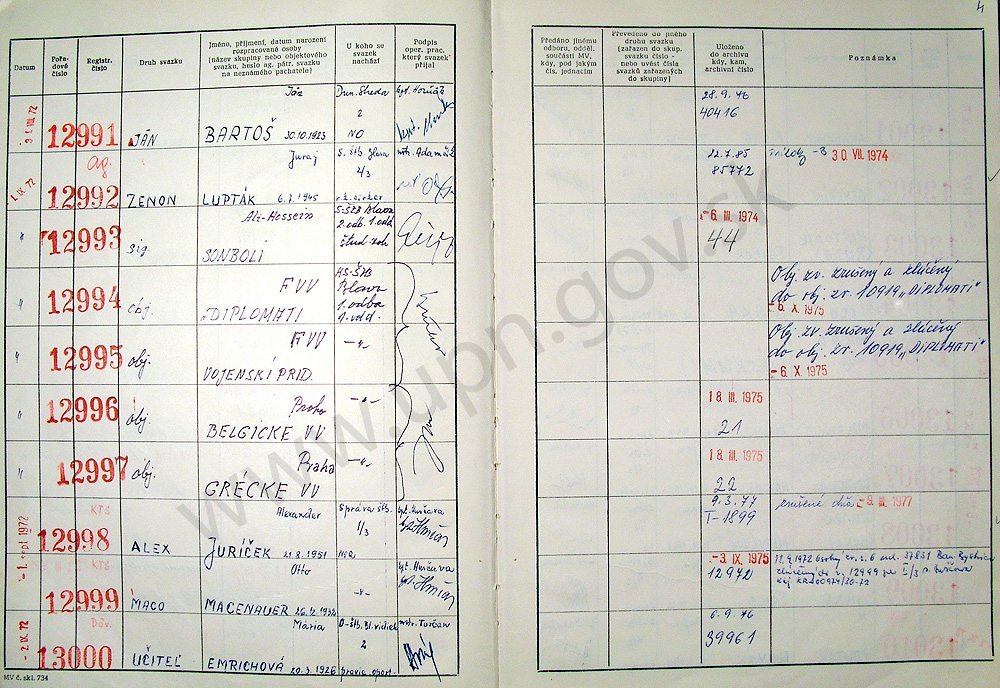 4
Datum
Pořadové číslo
Registr. číslo
Druh svazku
Jméno, příjmení, datum narození
rozpracované osoby
(název skupiny nebo objektového
svazku, heslo ag. pátr. svazku
na neznámého pachatele)
U koho se
svazek
nachází
Podpis
oper. prac.
který svazek
přijal
Předáno jinému
odboru, odděl.
součásti MV,
kdy, pod jakým
čís. jednacím
Převedeno do jiného
druhu svazku
(zařazen do skup.
svazku číslo -
nebo uvést čísla
svazků zařazených
do skupiny)
Uloženo
do archivu
kdy, kam,
archivní číslo
Poznámka
31. VIII. 72
12991
JÁN
Ján
BARTOŠ 30.10.1923
Dun. Streda
2
NO
28.9.76
40416
1. IX. 72
Ag.
12992
ZENON
Juraj
LUPTÁK 6.7.1945
r.k. cirkev
22.7.85
85772
-B 30 VII. 1974
"
12993
sig.
SONBOLI
2.odb. 1.odd
-6. III. 1974
44
"
12994
obj.
FVV
"DIPLOMATI
Blava
1. odbor
1. odd.
Obj. zv. zrušený a zlúčený
do obj. zv. 10919 "DIPLOMATI"
-6. X. 1975
"
12995
obj.
FVV
VOJENSKÍ PRID.
-"-
Obj. zv. zrušený a zlúčený
do obj. zv. 10919 "DIPLOMATI"
-6. X. 1975
"
12996
obj.
Praha
BELGICKÉ VV
-"-
18. III. 1975
21
"
12997
obj.
Praha
GRÉCKE VV
-"-
18. III. 1975
22
-1. sept. 1972
KTS
12998
ALEX
Alexander
JURÍČEK 21.8.1951
Správa ŠtB
1/3
9.3.77
I-1899
zrušené dňa -9. III. 1977
KTS
12999
MACO
Otto
MACENAUER
-"-
-3. IX. 1975
12972
-2. IX. 72
Dôv.
13000
UČITEĽ
Mária
EMRICHOVÁ 20.3.1926
O-ŠtB. Bl. vidiek
2
6.9.76
39961
MV č. skl. 734
www.upn.gov.sk